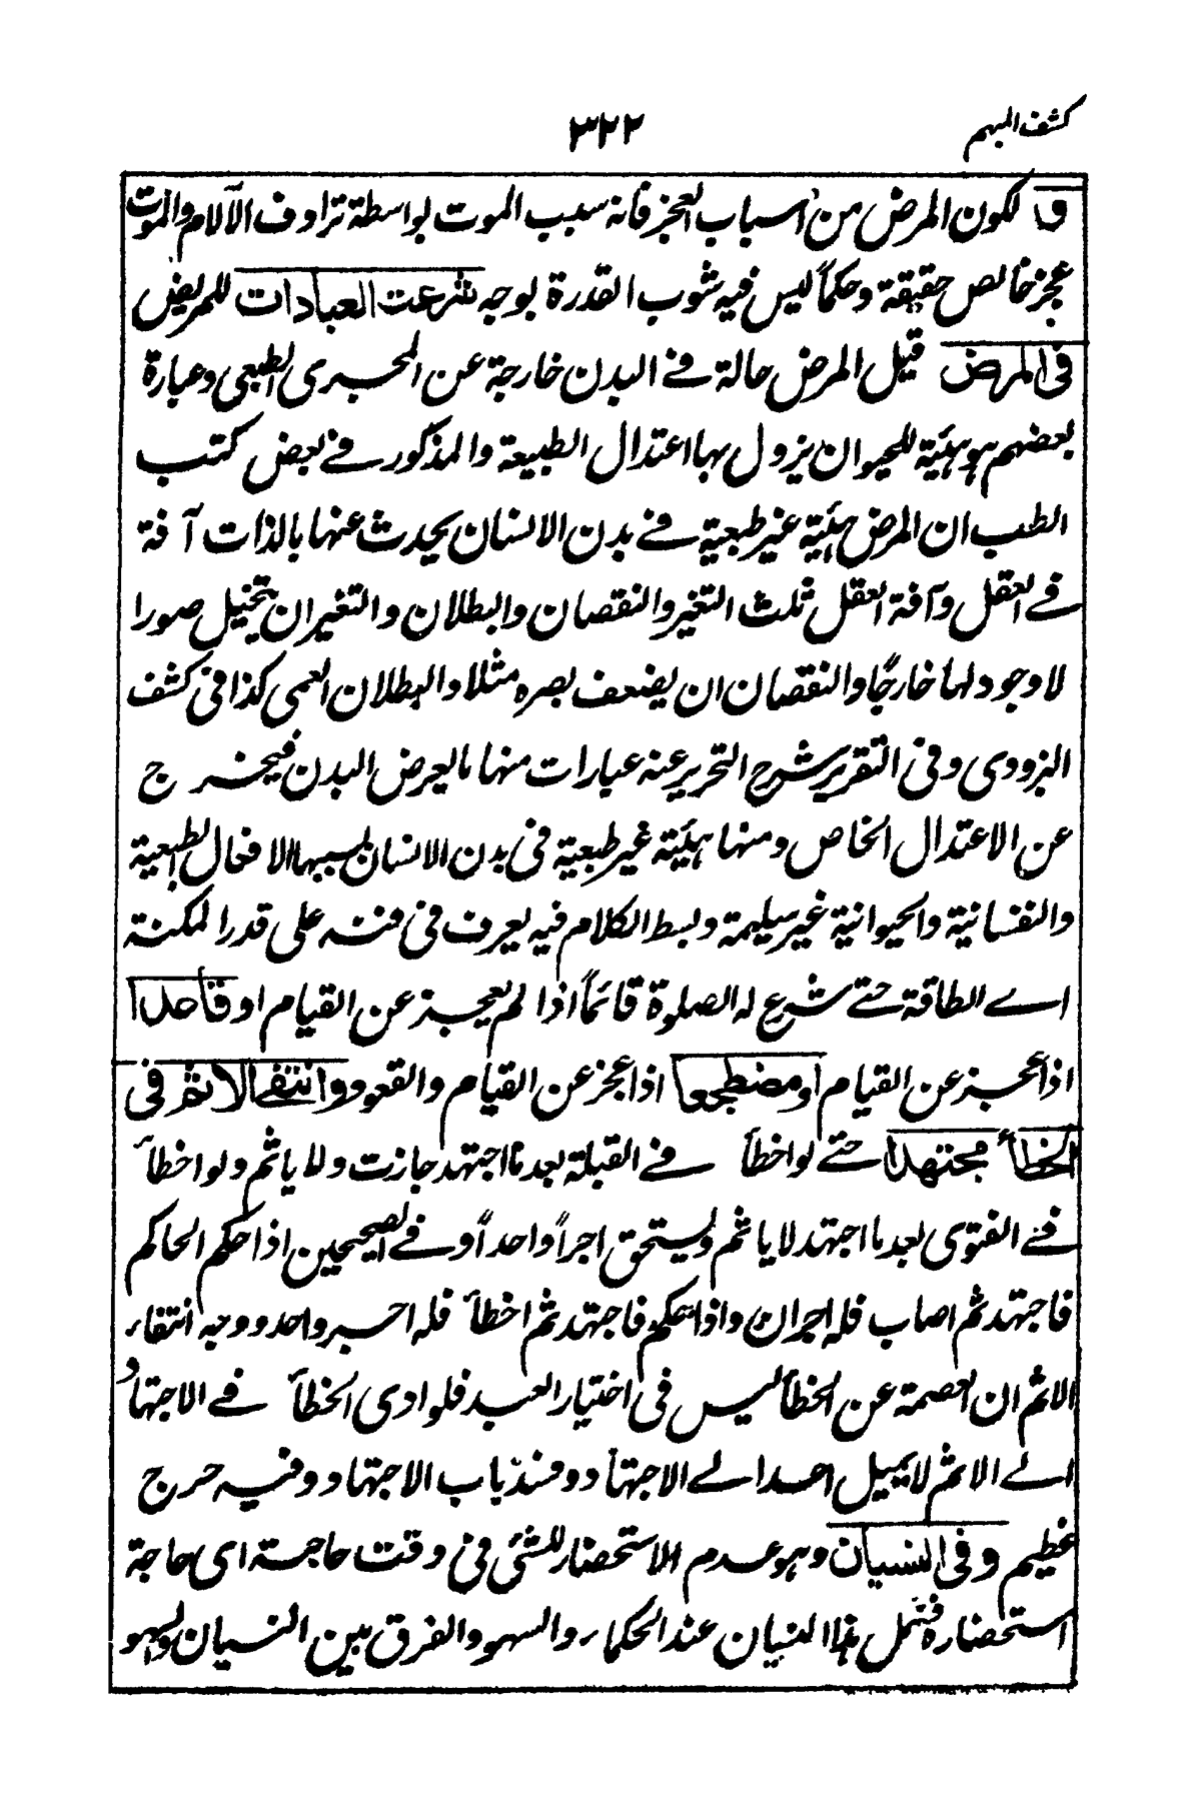 كشف المبهم
٣٢٢
و لكون المرض من اسباب العجز فانه سبب الموت بواسطة ترادف الآلام والموت
عجز خالص حقيقة وحكماً ليس فيه شوب القدرة بوجه شرعت العبادات للمريض
فى المرض قيل المرض حالة فے البدن خارجة عن المجرى الطبعى وعبارة
بعضهم هو هيئة للحيوان يزول بها اعتدال الطبيعة والمذكور فے بعض كتب
الطب ان المرض هيئية غير طبعية فے بدن الانسان يحدث عنها بالذات آفة
فے العقل وآفة العقل ثلث التغير والنقصان والبطلان والتغير ان يتخيل صورا
لا وجود لها خارجًا والنقصان ان يضعف بصره مثلا والبطلان العمى كذا فى كشف
البزدوى وفى التقرير شرح التحرير عنه عبارات منها ما يعرض البدن فيخرج
عن الاعتدال الخاص ومنها هيئية غير طبعية فى بدن الانسان بسببها الافعال الطبعية
والنفسانية والحيوانية غير سليمة وبسط الكلام فيه يعرف فى فنه على قدر المكنة
اے الطاقة حتے شرع له الصلوة قائماً اذا لم يعجز عن القيام او قاعدا
اذا عجز عن القيام او مضطجعا اذا عجز عن القيام والقعود وانتفے الاثم فى
الخطأ مجتهدا حتے لو اخطأ فے القبلة بعد ما اجتهد جازت ولا ياثم ولو اخطأ
فے الفتوى بعد ما اجتهد لا ياثم ويستحق اجراً واحداً وفے الصحيحين اذا حكم الحاكم
فاجتهد ثم اصاب فله اجران واذا حكم فاجتهد ثم اخطأ فله اجر واحد ووجه انتفاء
الاثم ان العصمة عن الخطأ ليس فى اختيار العبد فلو ادى الخطأ فے الاجتهاد
الے الاثم لا يميل احد الے الاجتهاد وفسد باب الاجتهاد وفيه حرج
عظيم وفى النسيان وهو عدم الاستحضار للشئ فى وقت حاجة اى حاجة
استحضاره فشمل هذا النسيان عند الحكماء والسهو والفرق بين النسيان والسهو